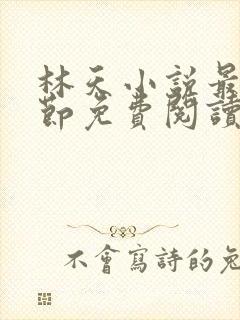 林天小說最
節免費閱讀
不會寫詩的兔